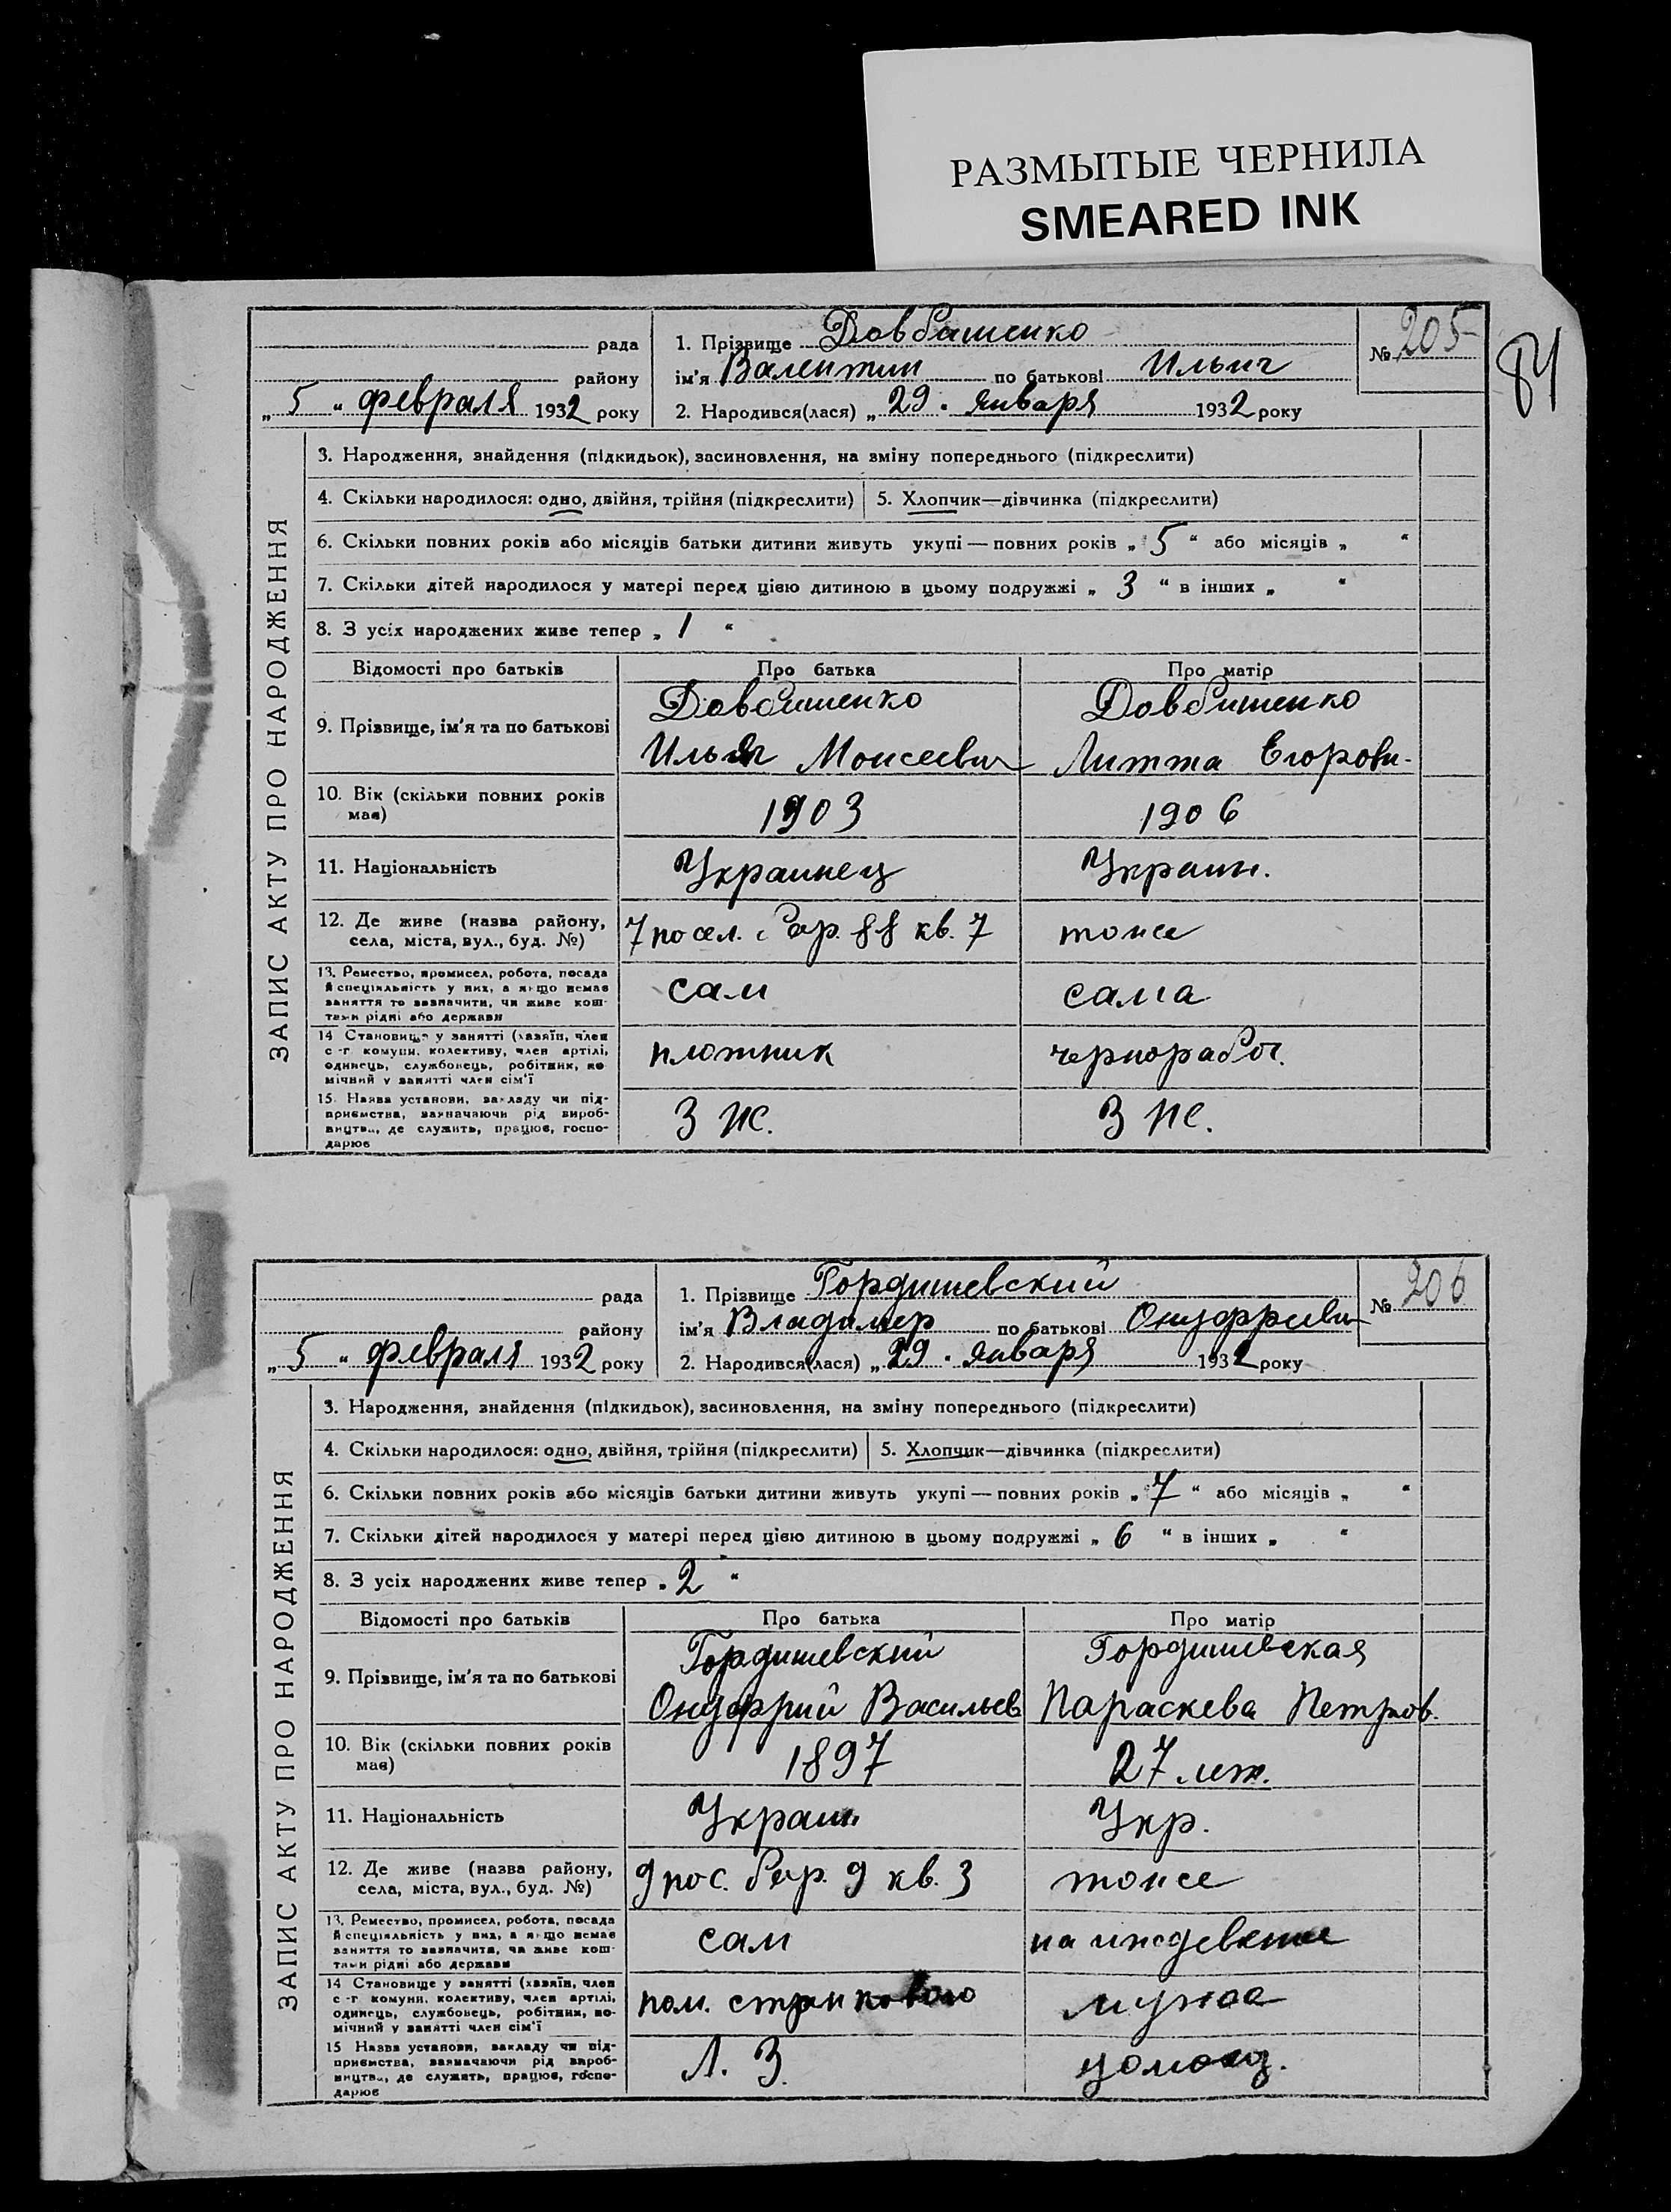 РАЗМЫТЫЕ ЧЕРНИЛА
SMEARED INK
84
рада
району
„ 5 “ февраля 1932 року
1. Прізвище Довбишенко
ім'я Валентин по батькові Ильич
2. Народився(лася) „ 29 “ января 1932 року
№ 205
ЗАПИС АКТУ ПРО НАРОДЖЕННЯ
3. Народження, знайдення (підкидьок), засиновлення, на зміну попереднього (підкреслити)
4. Скільки народилося: одно, двійня, трійня (підкреслити) 5. Хлопчик—дівчинка (підкреслити)
6. Скільки повних років або місяців батьки дитини живуть укупі — повних років „ 5 “ або місяців „ “
7. Скільки дітей народилося у матері перед цією дитиною в цьому подружжі „ 3 “ в інших „ “
8. З усіх народжених живе тепер „ 1 “
Відомості про батьків Про батька Про матір
9. Прізвище, ім'я та по батькові
Довбишенко
Илья Моисеевич
Довбишенко
Егоровн.
10. Вік (скільки повних років
має)
1903 1906
11. Національність Украинец Украин.
12. Де живе (назва району,
села, міста, вул., буд. №)
7 посел. бар. 88 кв. 7 тоже
13. Ремество, промисел, робота, посада
й спеціяльність у них, а якщо немає
заняття то зазначити, чи живе кош-
тами рідні або держави
сам сама
14 Становище у занятті (хазяїн, член
с.-г. комуни, колективу, член артілі,
одинець, службовець, робітник, по-
мічний у занятті член сім'ї
плотник чернорабоч.
15 Назва установи, закладу чи під-
приємства, зазначаючи рід вироб-
ництва, де служить, працює, госпо-
дарює
З Ж. З Ж.
рада
району
„ 5 “ февраля 1932 року
1. Прізвище Гордишевский
ім'я Владимир по батькові Онуфриевич
2. Народився(лася) „ 29 “ января 1932 року
№ 206
ЗАПИС АКТУ ПРО НАРОДЖЕННЯ
3. Народження, знайдення (підкидьок), засиновлення, на зміну попереднього (підкреслити)
4. Скільки народилося: одно, двійня, трійня (підкреслити) 5. Хлопчик—дівчинка (підкреслити)
6. Скільки повних років або місяців батьки дитини живуть укупі — повних років „ 7 “ або місяців „ “
7. Скільки дітей народилося у матері перед цією дитиною в цьому подружжі „ 6 “ в інших „ “
8. З усіх народжених живе тепер „ 2 “
Відомості про батьків Про батька Про матір
9. Прізвище, ім'я та по батькові
Гордишевский
Онуфрий Васильев
Гордишевская
Параскева Петров.
10. Вік (скільки повних років
має)
1897 27 лет.
11. Національність Украин Укр.
12. Де живе (назва району,
села, міста, вул., буд. №)
9 пос. бар. 9 кв. 3 тоже
13. Ремество, промисел, робота, посада
й спеціяльність у них, а якщо немає
заняття то зазначити, чи живе кош-
тами рідні або держави
сам на иждевении
14 Становище у занятті (хазяїн, член
с.-г. комуни, колективу, член артілі,
одинець, службовець, робітник, по-
мічний у занятті член сім'ї
пом. мужа
15 Назва установи, закладу чи під-
приємства, зазначаючи рід вироб-
ництва, де служить, працює, госпо-
дарює
Л. З. домохоз.